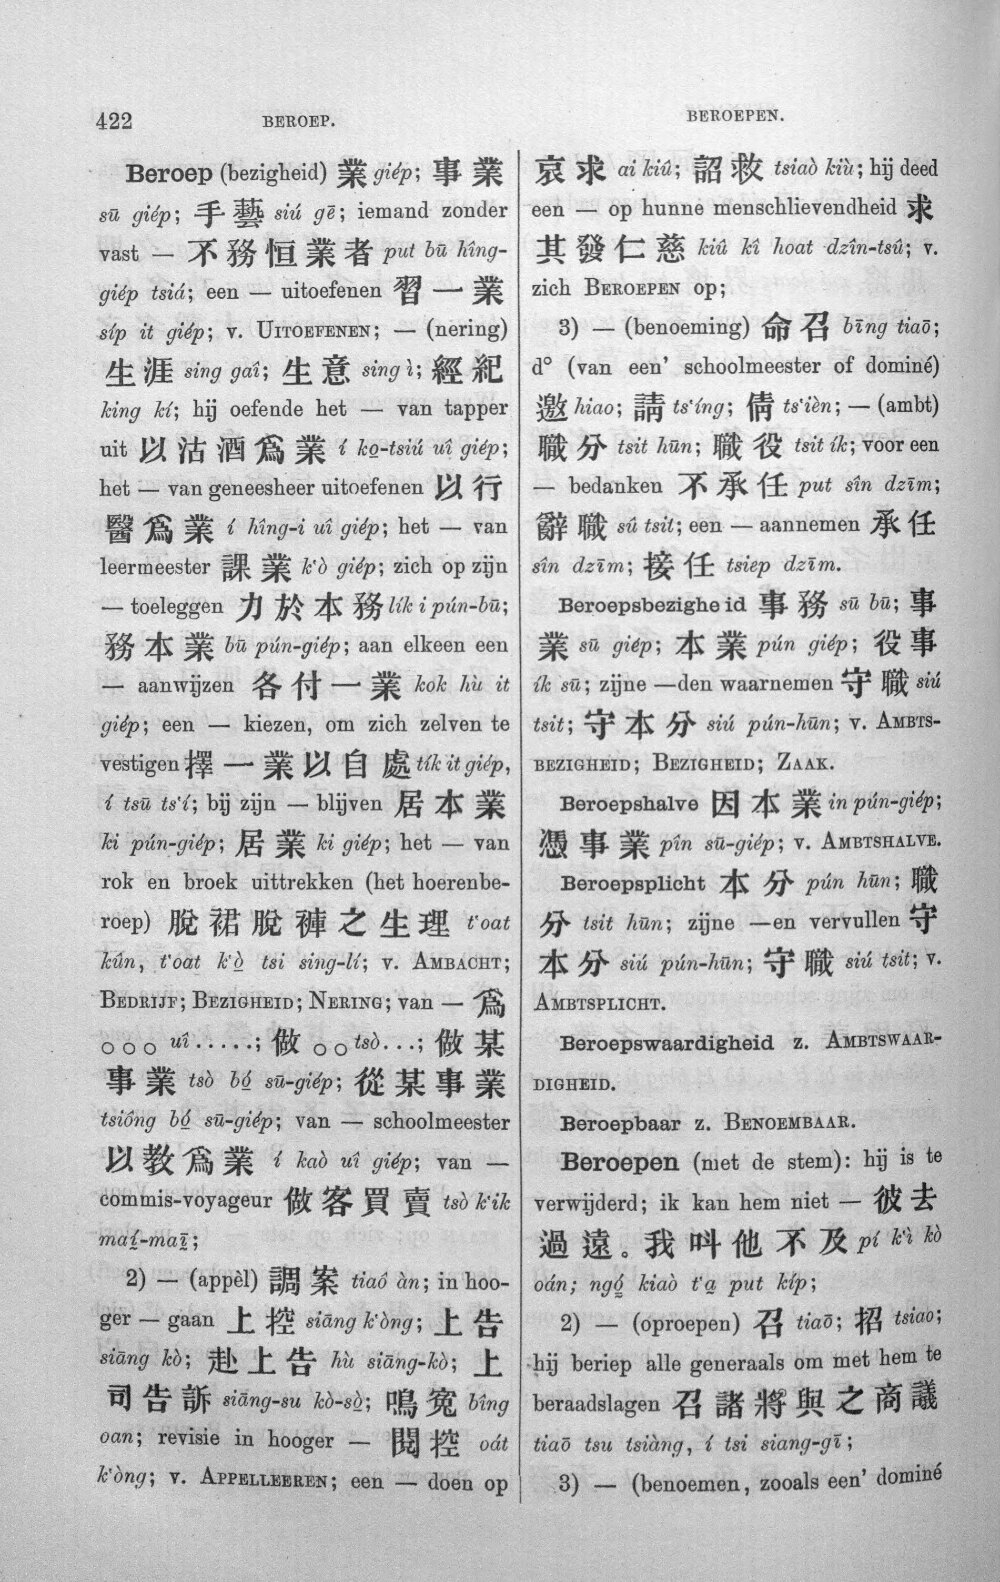 422 BEROEP. BEROEPEN.
Beroep (bezigheid) 業 giép; 事業
sū giép; 手藝 siú gē; iemand zonder
vast — 不務恒業者 put bū hîng-
giép tsiá; een — uitoefenen 習一業
síp it giép; v. UITOEFENEN; — (nering)
生涯 sing gaî; 生意 sing ì; 經紀
king kí; hij oefende het — van tapper
uit 以沽酒爲業 í ko̤-tsiú uî giép;
het — van geneesheer uitoefenen 以行
醫爲業 í hîng-i uî giép; het — van
leermeester 課業 k‘ò giép; zich op zijn
— toeleggen 力於本務 lík i pún-bū;
務本業 bū pún-giép; aan elkeen een
— aanwijzen 各付一業 kok hù it
giép; een — kiezen, om zich zelven te
vestigen 擇一業以自處 tík it giép,
í tsū ts‘í; bij zijn — blijven 居本業
ki pún-giép; 居業 ki giép; het — van
rok en broek uittrekken (het hoerenbe-
roep) 脫裙脫褲之生理 t‘oat
kûn, t‘oat k‘ò̤ tsi sing-lí; v. AMBACHT;
BEDRIJF; BEZIGHEID; NERING; van — 爲
○○○ uî.....; 做○○ tsò...; 做某
事業 tsò bó̤ sū-giép; 從某事業
tsiông bó̤ sū-giép; van — schoolmeester
以教爲業 í kaò uî giép; van —
commis-voyageur 做客買賣 tsò k‘ik
maí̤-maī̤;
2) — (appèl) 調案 tiaô àn; in hoo-
ger — gaan 上控 siāng k‘òng; 上告
siāng kò; 赴上告 hù siāng-kò; 上
司告訴 siāng-su kò-sò̤; 鳴寃 bîng
oan; revisie in hooger — 閱控 oát
k‘òng; v. APPELLEEREN; een — doen op
哀求 ai kiû; 詔救 tsiaò kiù; hij deed
een — op hunne menschlievendheid 求
其發仁慈 kiû kî hoat dzîn-tsû; v.
zich BEROEPEN op;
3) — (benoeming) 命召 bīng tiaō;
d° (van een’ schoolmeester of dominé)
邀 hiao; 請 ts‘íng; 倩 ts‘ièn; — (ambt)
職分 tsit hūn; 職役 tsit ík; voor een
— bedanken 不承任 put sîn dzīm;
辭職 sû tsit; een — aannemen 承任
sîn dzīm; 接任 tsiep dzīm.
Beroepsbezigheid 事務 sū bū; 事
業 sū giép; 本業 pún giép; 役事
ík sū; zijne —den waarnemen 守職 siú
tsit; 守本分 siú pún-hūn; v. AMBTS-
BEZIGHEID; BEZIGHEID; ZAAK.
Beroepshalve 因本業 in pún-giép;
憑事業 pîn sū-giép; v. AMBTSHALVE.
Beroepsplicht 本分 pún hūn; 職
分 tsit hūn; zijne —en vervullen 守
本分 siú pún-hūn; 守職 siú tsit; v.
AMBTSPLICHT.
Beroepswaardigheid z. AMBTSWAAR-
DIGHEID.
Beroepbaar z. BENOEMBAAR.
Beroepen (met de stem): hij is te
verwijderd; ik kan hem niet — 彼去
過遠。我叫他不及 pí k‘ì kò
oán; ngó̤ kiaò t‘a̤ put kíp;
2) — (oproepen) 召 tiaō; 招 tsiao;
hij beriep alle generaals om met hem te
beraadslagen 召諸將與之商議
tiaō tsu tsiàng, í tsi siang-gī;
3) — (benoemen, zooals een’ dominé